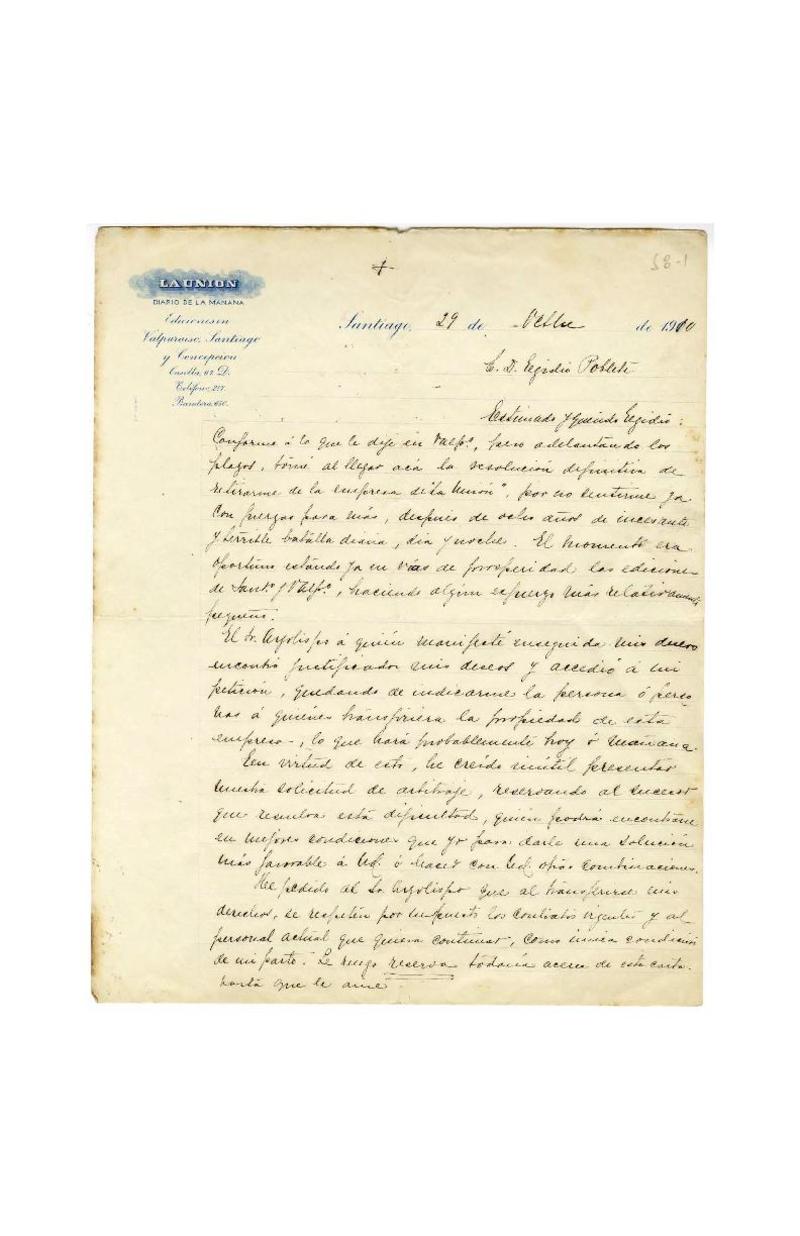 58-1
LA UNION
DIARIO DE LA MAÑANA
Ediciones en
Valparaiso, Santiago
y Concepcion
Casilla, 67. D.
Teléfono, 227.
Bandera, 650.
Santiago, 29 de Octbre de 1910
S. D. Egidio Poblete
Estimado y querido Egidio:
Conforme á lo que le dije en Valpº, pero adelantando los
plazos, tomé al llegar acá la resolución definitiva de
retirarme de la empresa de "La Unión", por no sentirme ya
con fuerzas para más, después de ocho años de incesante
y terrible batalla diaria, dia y noche. El momento era
oportuno estando ya en vías de prosperidad las ediciones
de Santº y Valpº, haciendo algun esfuerzo más relativamente
pequeño.
El Sr. Arzobispo á quién manifesté enseguida mis deseos
encontró justificados mis deseos y accedió á mi
petición, quedando de indicarme la persona ó perso
nas á quiénes transfiriera la propiedad de esta
empresa, lo que hará probablemente hoy ó mañana.
En virtud de esto, he creido inútil presentar
nuestra solicitud de arbitraje, reservando al sucesor
que resuelva esta dificultad, quién podrá encontrarse
en mejores condiciones que yo para darle una solución
más favorable á Ud. ó hacer con Ud. otras combinaciones.
He pedido al Sr. Arzobispo que al transferirse mis
derechos, se respeten por supuesto los contratos vigentes y al
personal actual que quiera continuar, como única condición
de mi parte. Le ruego reserva todavía acerca de esta carta
hasta que le avise